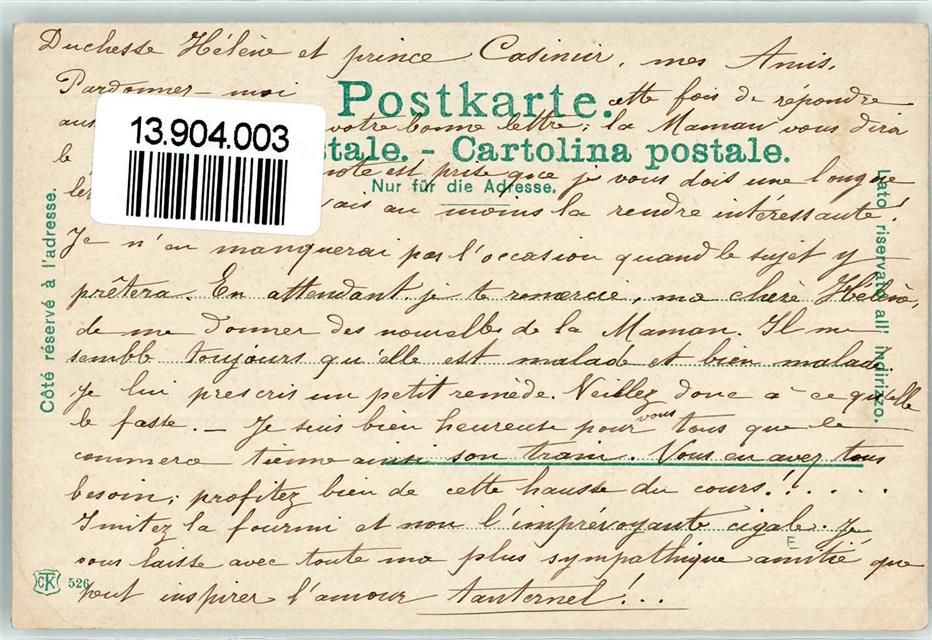 Duchesse Hélène et prince Casimir, mes Amis,
Pardonnez-moi cette fois de répondre
Postkarte.
13.904.003
aus votre bonne lettre; la Maman vous dira
stale. - Cartolina postale.
le note est prise que je vous dois une longue
Nur für die Adresse.
let vais au moins la rendre intéressante!
Je n'en manquerai pas l'occasion quand le sujet y
prêtera. En attendant je te remercie, ma chère Hélène,
de me donner des nouvelles de la Maman. Il me
semble toujours qu'elle est malade et bien malade.
Je lui prescris un petit remède. Veillez donc à ce qu'elle
le fasse. - Je suis bien heureuse pour vous tous que le
commerce tienne ainsi son train. Vous en avez tous
besoin; profitez bien de cette hausse du cours!.....
Imitez la fourmi et non l'imprévoyante cigale. Je
E
vous laisse avec toute ma plus sympathique amitié que
peut inspirer l'amour tanternel!..
CK 526
Côté réservé à l'adresse.
Lato riservato all' indirizzo.